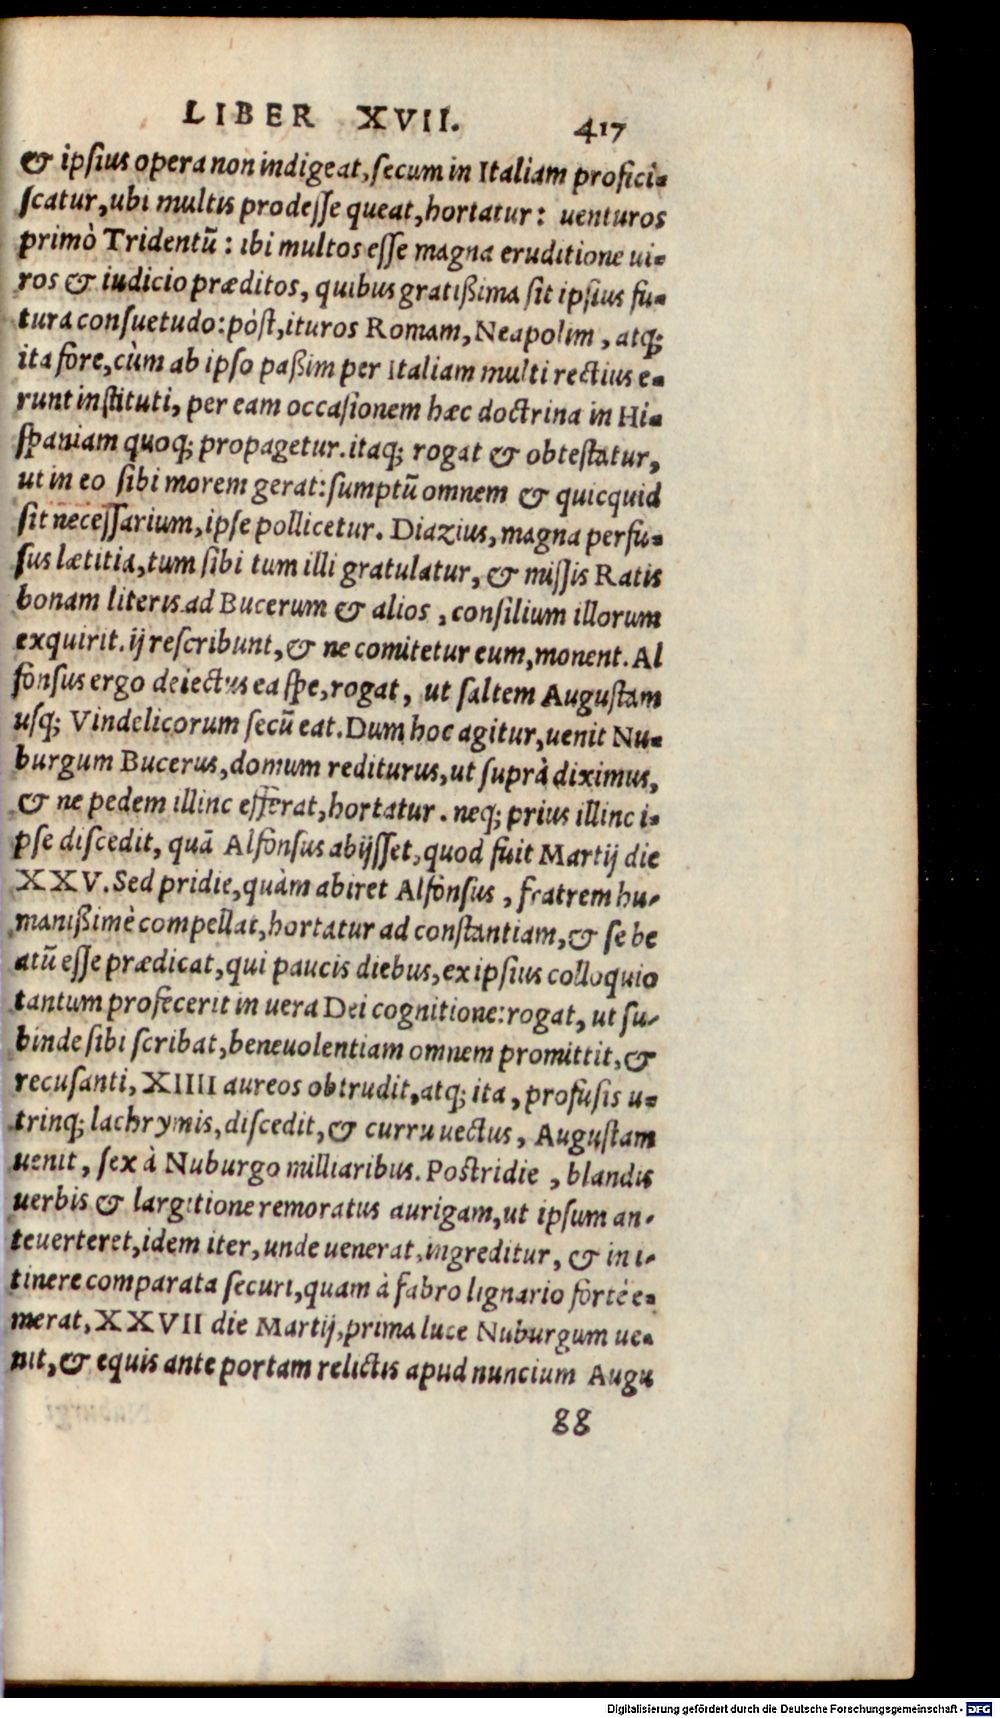 LIBER XVII. 417
& ipsius opera non indigeat, secum in Italiam profici-
scatur, ubi multis prodesse queat, hortatur: uenturos
primò Tridentū: ibi multos esse magna eruditione ui-
ros & iudicio præditos, quibus gratißima sit ipsius fu-
tura consuetudo: pòst, ituros Romam, Neapolim, atq;
ita fore, cùm ab ipso paßim per Italiam multi rectius e-
runt instituti, per eam occasionem hæc doctrina in Hi-
spaniam quoq; propagetur. itaq; rogat & obtestatur,
ut in eo sibi morem gerat: sumptū omnem & quicquid
sit necessarium, ipse pollicetur. Diazius, magna perfu-
sus lætitia, tum sibi tum illi gratulatur, & missis Ratis
bonam literis ad Bucerum & alios, consilium illorum
exquirit. ij rescribunt, & ne comitetur eum, monent. Al
fonsus ergo deiectus ea spe, rogat, ut saltem Augustam
usq; Vindelicorum secū eat. Dum hoc agitur, uenit Nu-
burgum Bucerus, domum rediturus, ut suprà diximus,
& ne pedem illinc efferat, hortatur. neq; prius illinc i-
pse discedit, quā Alfonsus abijsset, quod fuit Martij die
XXV. Sed pridie, quàm abiret Alfonsus, fratrem hu-
manißimè compellat, hortatur ad constantiam, & se be
atū esse prædicat, qui paucis diebus, ex ipsius colloquio
tantum profecerit in uera Dei cognitione: rogat, ut su-
binde sibi scribat, beneuolentiam omnem promittit, &
recusanti, XIIII aureos obtrudit, atq; ita, profusis u-
trinq; lachrymis, discedit, & curru uectus, Augustam
uenit, sex à Nuburgo milliaribus. Postridie, blandis
uerbis & largitione remoratus aurigam, ut ipsum an-
teuerteret, idem iter, unde uenerat, ingreditur, & in i-
tinere comparata securi, quam à fabro lignario fortè e-
merat, XXVII die Martij, prima luce Nuburgum ue-
nit, & equis ante portam relictis apud nuncium Augu
gg
Digitalisierung gefördert durch die Deutsche Forschungsgemeinschaft - DFG